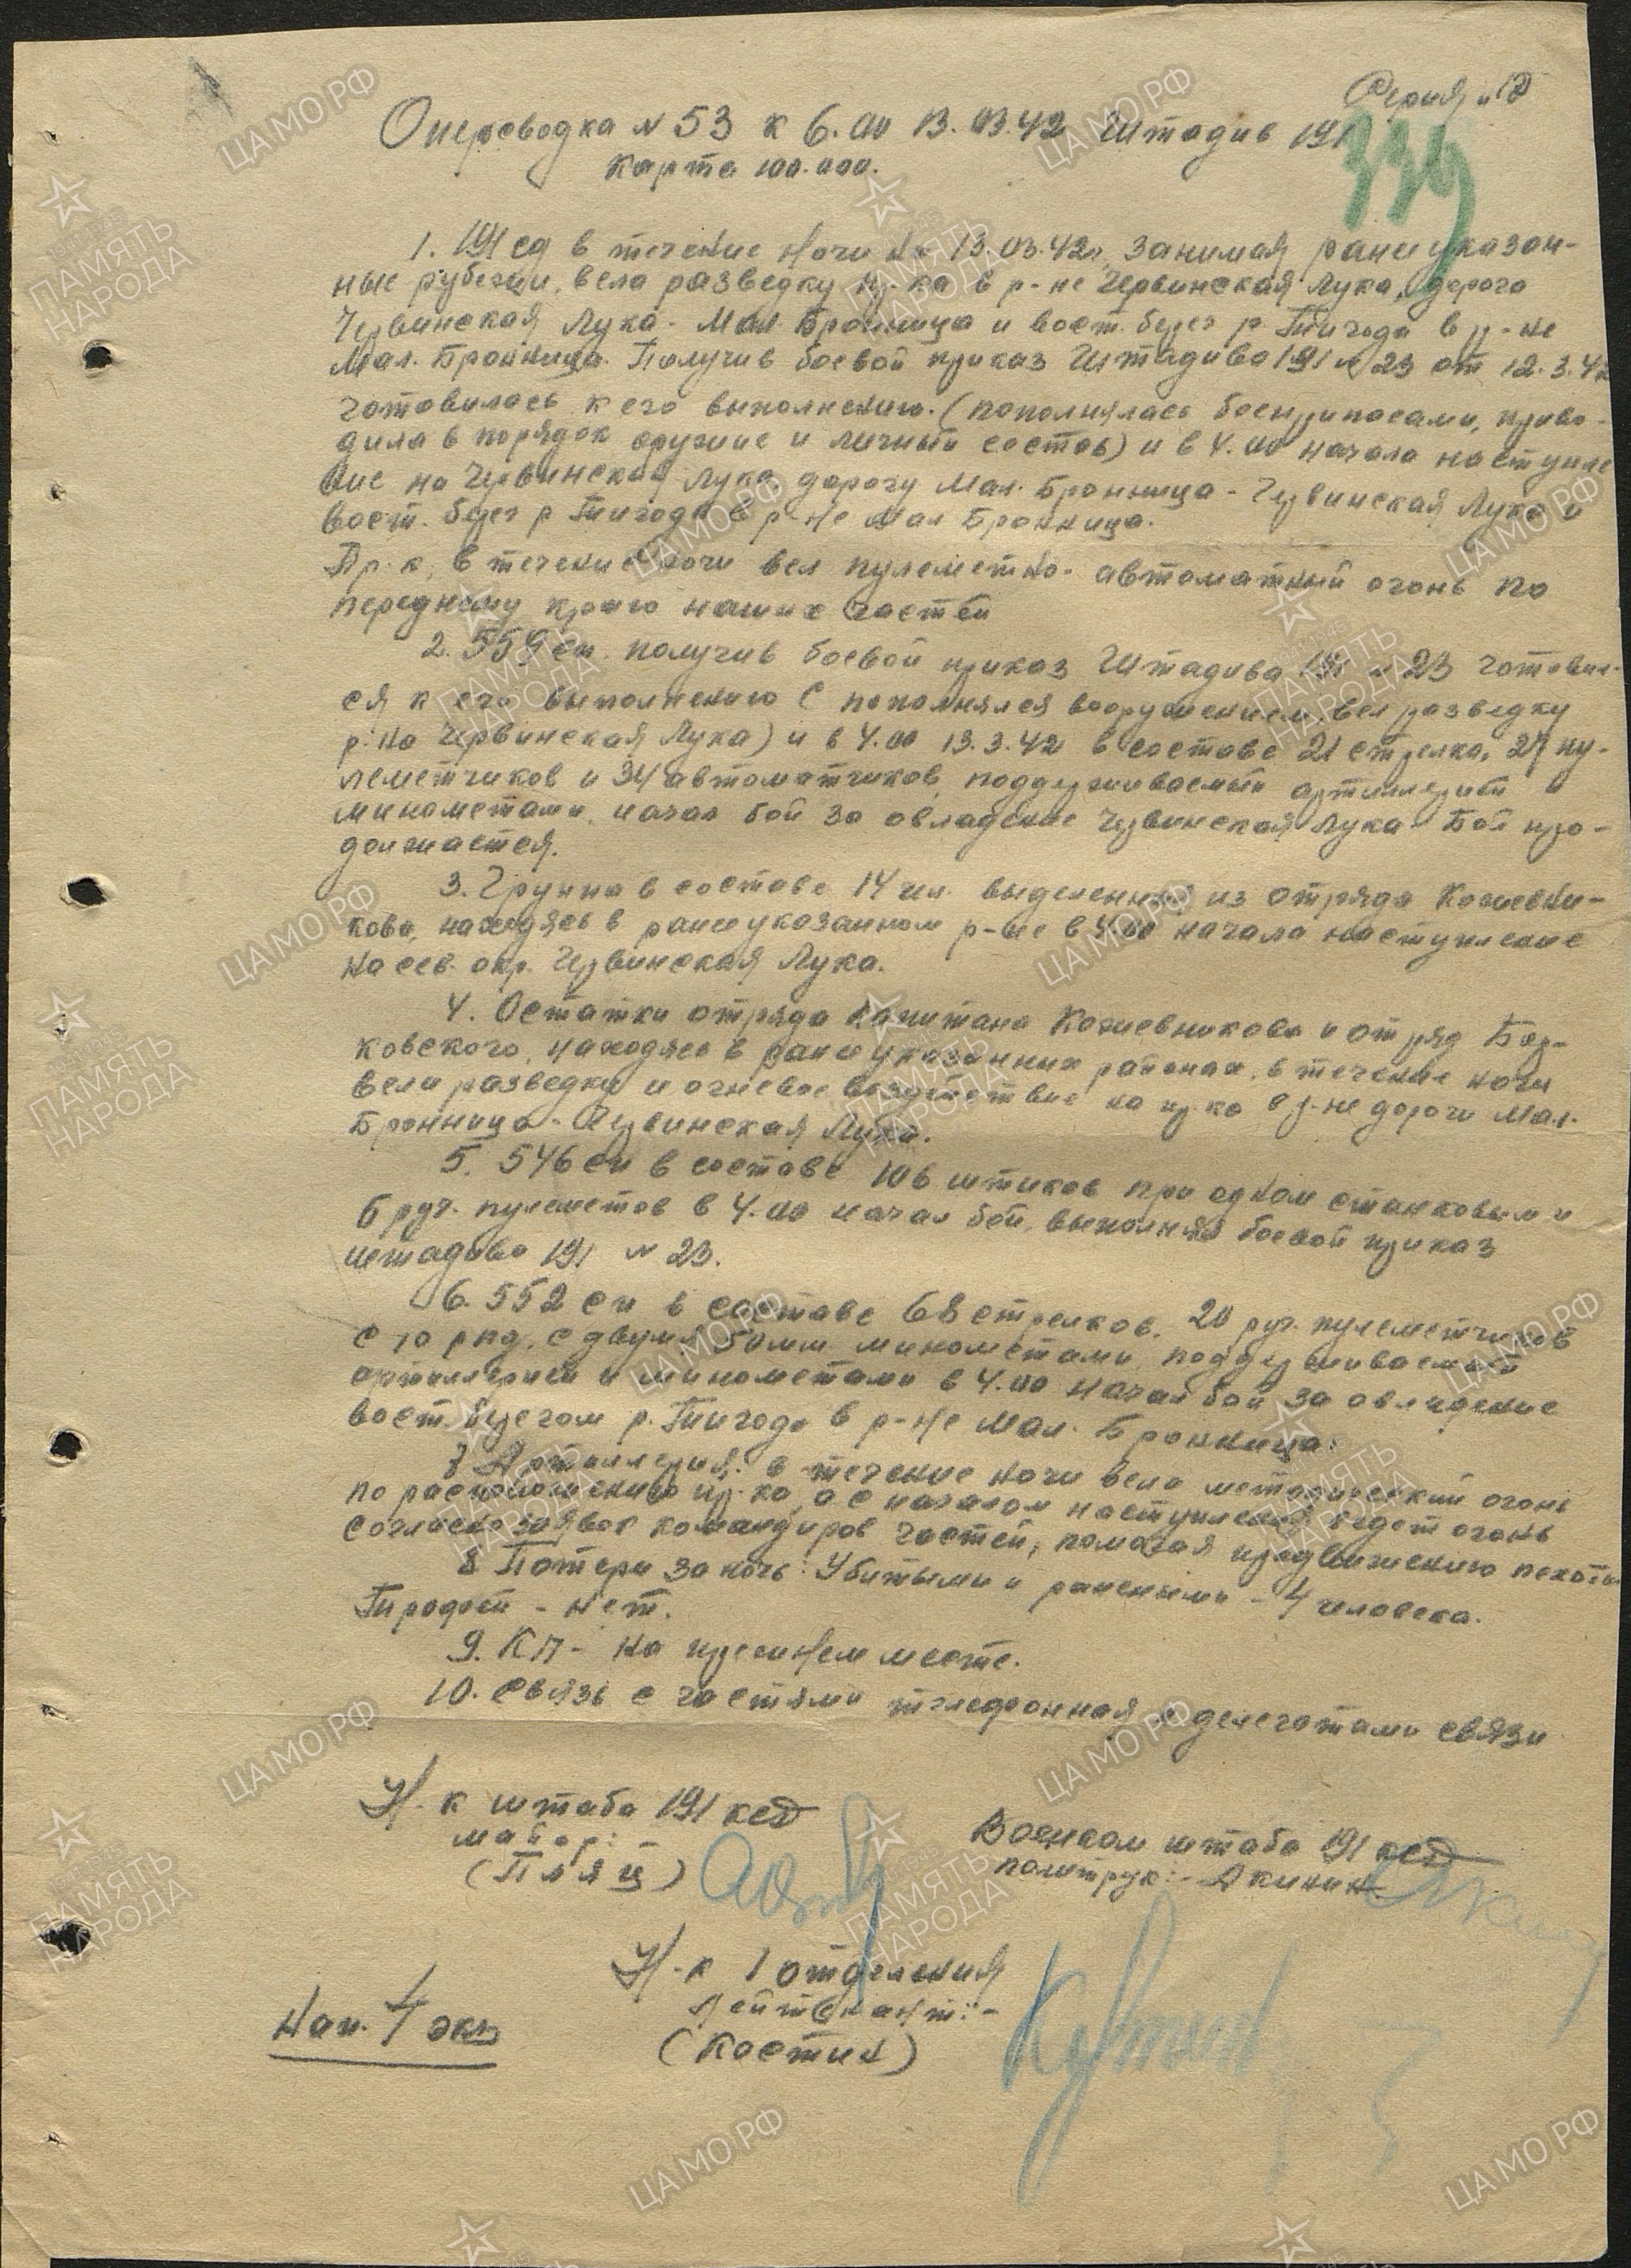 Серия "Д"
Оперсводка № 53 к 6.00 13.03.42 Штадив 191
Карта 100.000.
339
1. 191 сд в течение ночи на 13.03.42г. занимая ранее указан-
ные рубежи, вела разведку пр-ка в р-не Червинская Лука, дорога
Червинская Лука - Мал. Бронница и вост. берег р. Тигода в р-не
Мал. Бронница. Получив боевой приказ Штадива 191 № 23 от 12.3.42
готовилась к его выполнению. (пополнялась боеприпасами, приво-
дила в порядок оружие и личный состав) и в 4.00 начала наступле
ние на Червинская Лука, дорогу Мал. Бронница - Червинская Лука и
вост. берег р. Тигода в р-не Мал Бронница.
Пр-к, в течение ночи вел пулеметно-автоматный огонь по
переднему краю наших частей
2. 559 сп. получив боевой приказ Штадива 191 № 23 готовил-
ся к его выполнению (пополнялся вооружением, вел разведку
р-на Червинская Лука) и в 4.00 13.3.42 в составе 21 стрелка, 27 пу-
леметчиков и 34 автоматчиков, поддерживаемый артиллерией и
минометами, начал бой за овладение Червинская Лука. Бой про-
должается.
3. Группа в составе 14 чел. выделенная из отряда Кожевни-
кова, находясь в ранее указанном р-не в 4.00 начала наступление
на сев. окр. Червинская Лука.
4. Остатки отряда капитана Кожевникова и отряд Бер-
ковского, находясь в ранее указанных районах, в течение ночи
вели разведку и огневое воздействие на пр-ка в р-не дороги Мал.
Бронница - Червинская Лука.
5. 546 сп в составе 106 штыков при одном станковым и
6 руч. пулеметов в 4.00 начал бой, выполняя боевой приказ
штадива 191 № 23.
6. 552 сп в составе 68 стрелков, 20 руч. пулеметчиков
с 10 рпд, с двумя 50мм минометами, поддерживаемый
артиллерией и минометами в 4.00 начал бой за овладение
вост. берегом р. Тигода в р-не Мал. Бронница.
7 Артиллерия, в течение ночи вела методический огонь
по расположению пр-ка, а с началом наступления ведет огонь
согласно заявок командиров частей, помогая продвижению пехоты
8 Потери за ночь: Убитыми и ранеными - 4 человека.
Трофей - нет.
9. КП - на прежнем месте.
10. Связь с частями телефонная и делегатами связи
Н-к штаба 191 ксд
майор: -
(Пляц)
Военком штаба 191 ксд
политрук: - Акинин.
Н-к 1 отделения
Лейтенант: -
(Костин)
Нап. 4 экз
ЦАМО РФ
ПАМЯТЬ НАРОДА